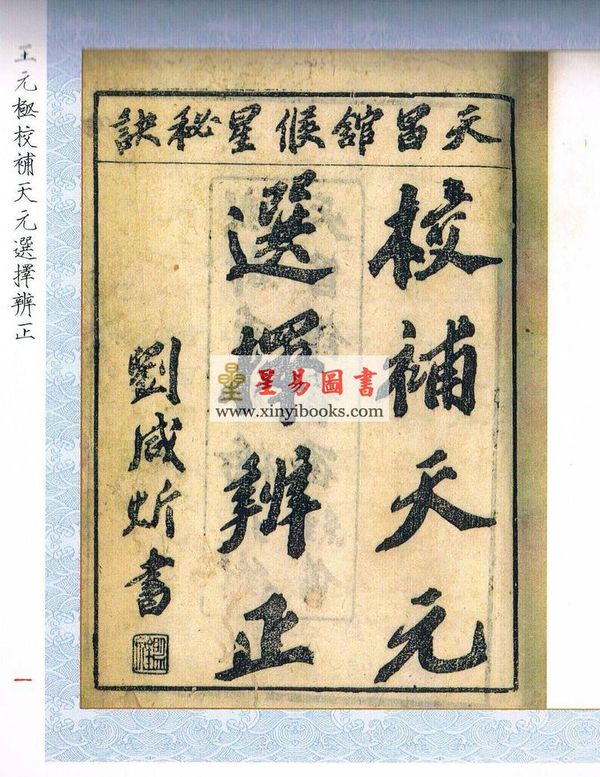 王元極校補天元選擇辨正
一
天昌舘候星秘訣
校補天元
選擇辨正
劉咸炘書
星易圖書
www.xinyibooks.com